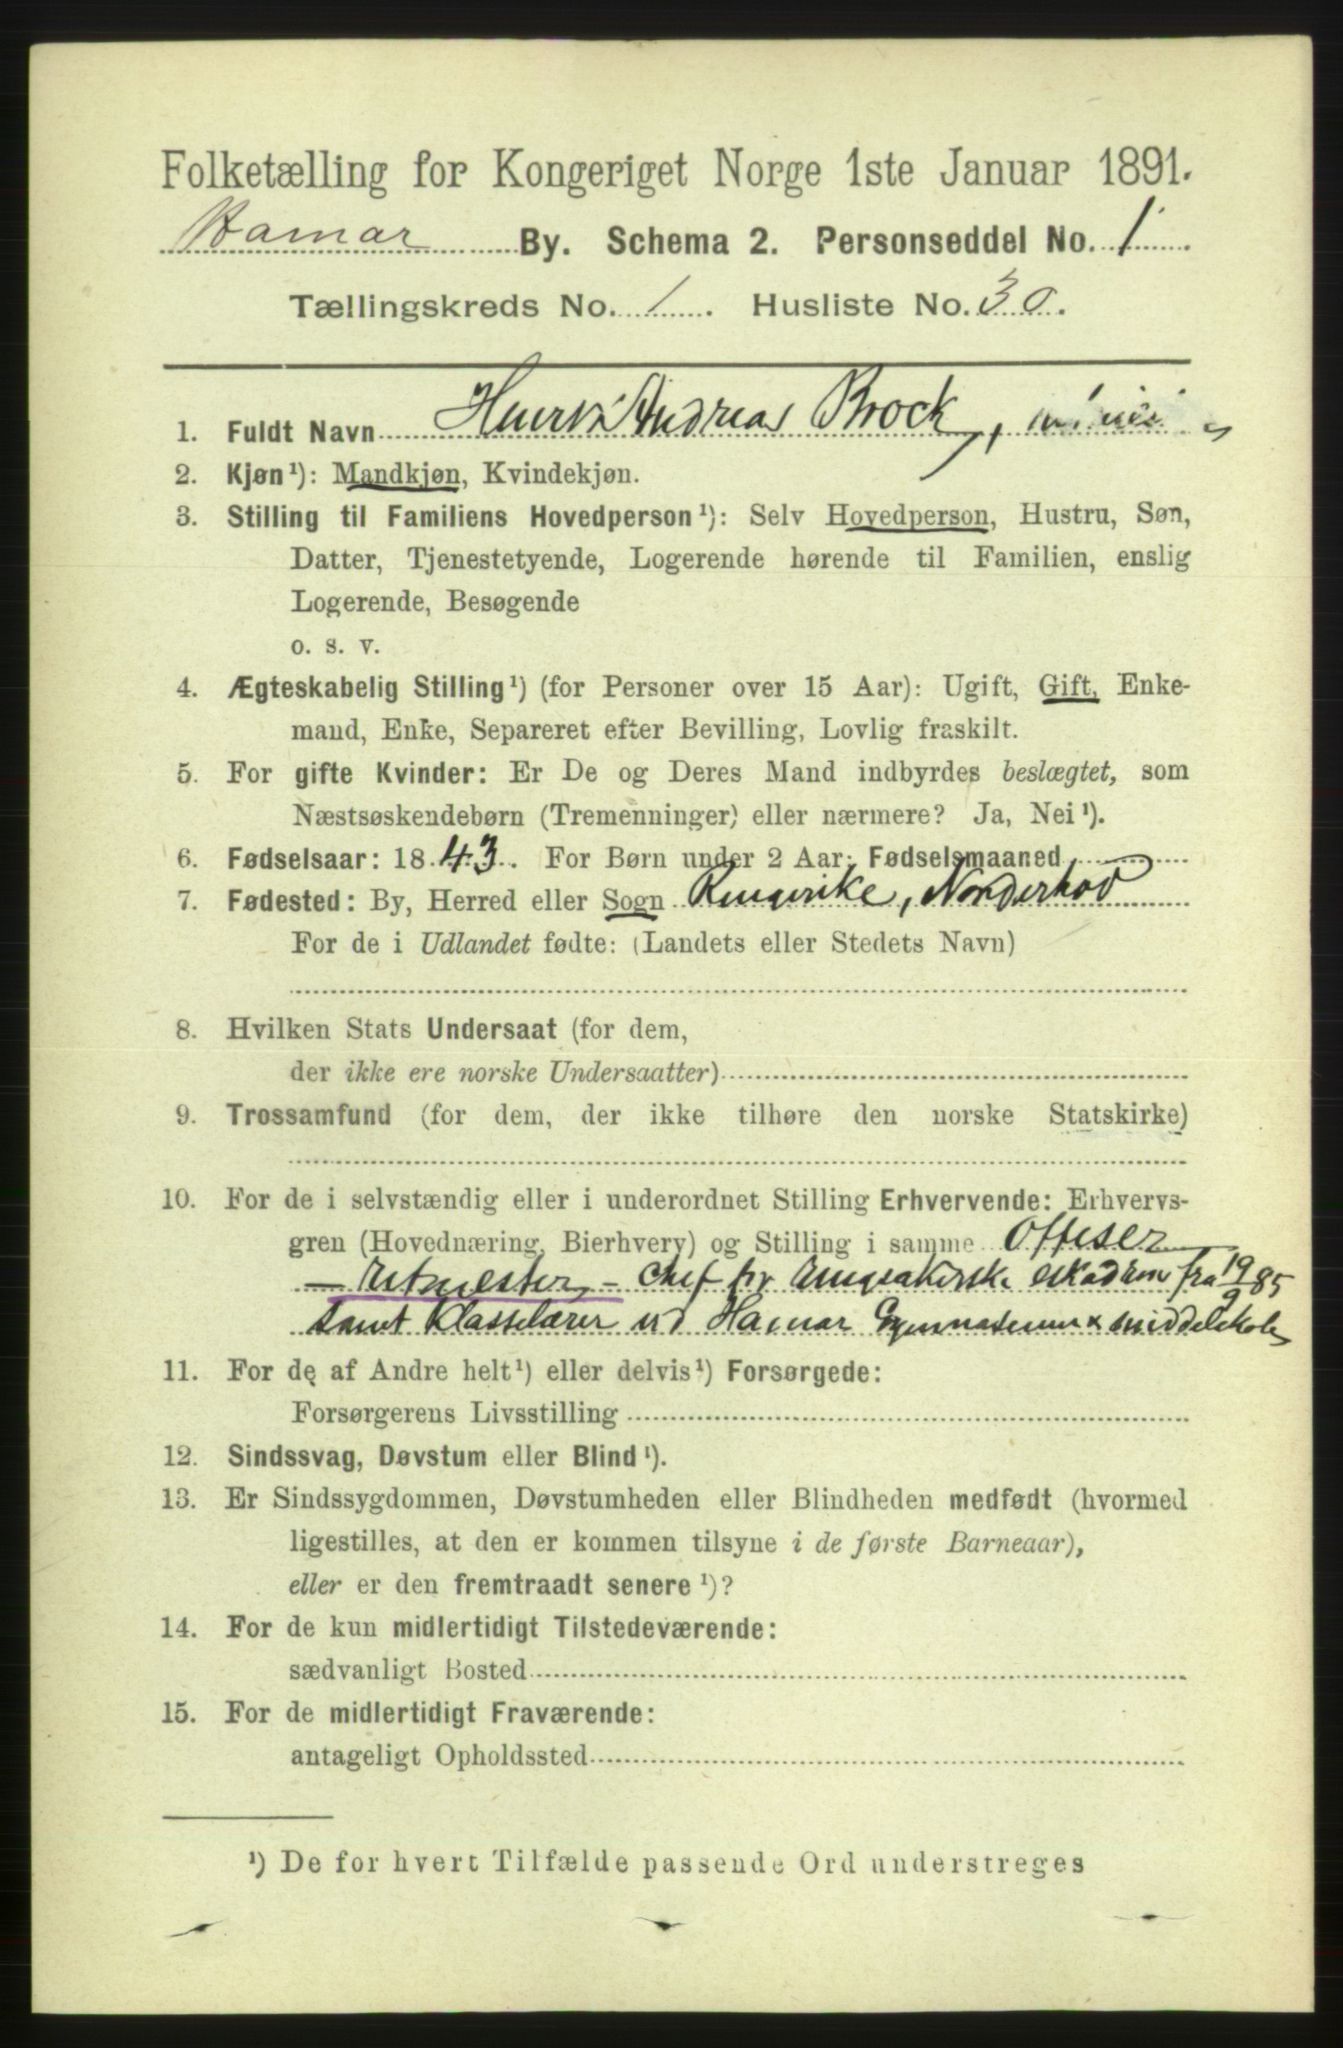 Folketælling for Kongeriget Norge 1ste Januar 1891.
Hamar By. Schema 2. Personseddel No. 1
Tællingskreds No. 1. Husliste No. 30.
1. Fuldt Navn Henrik Andreas Brock,
2. Kjøn¹): Mandkjøn, Kvindekjøn.
3. Stilling til Familiens Hovedperson¹): Selv Hovedperson, Hustru, Søn,
Datter, Tjenestetyende, Logerende hørende til Familien, enslig
Logerende, Besøgende
o. s. v.
4. Ægteskabelig Stilling¹) (for Personer over 15 Aar): Ugift, Gift, Enke-
mand, Enke, Separeret efter Bevilling, Lovlig fraskilt.
5. For gifte Kvinder: Er De og Deres Mand indbyrdes beslægtet, som
Næstsøskendebørn (Tremenninger) eller nærmere? Ja, Nei¹).
6. Fødselsaar: 1843. For Børn under 2 Aar: Fødselsmaaned
7. Fødested: By, Herred eller Sogn Ringerike, Norderhov
For de i Udlandet fødte: (Landets eller Stedets Navn)
8. Hvilken Stats Undersaat (for dem,
der ikke ere norske Undersaatter)
9. Trossamfund (for dem, der ikke tilhøre den norske Statskirke)
10. For de i selvstændig eller i underordnet Stilling Erhvervende: Erhvervs-
gren (Hovednæring, Bierhverv) og Stilling i samme Offiser
- Ritmester - Chef for Ringsakerske eskadron fra 19/9 85
samt Klasselærer ved Hamar Gymnasium & middelskole
11. For de af Andre helt¹) eller delvis¹) Forsørgede:
Forsørgerens Livsstilling
12. Sindssvag, Døvstum eller Blind¹).
13. Er Sindssygdommen, Døvstumheden eller Blindheden medfødt (hvormed
ligestilles, at den er kommen tilsyne i de første Barneaar),
eller er den fremtraadt senere¹)?
14. For de kun midlertidigt Tilstedeværende:
sædvanligt Bosted
15. For de midlertidigt Fraværende:
antageligt Opholdssted
¹) De for hvert Tilfælde passende Ord understreges